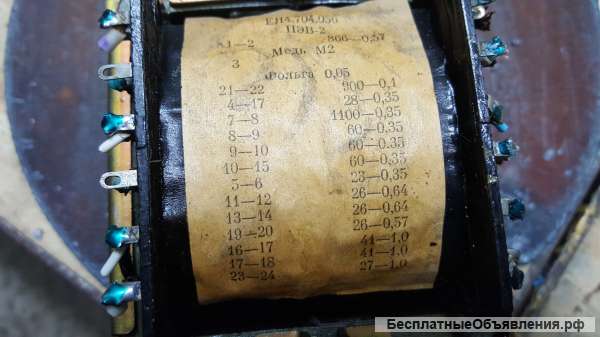 ЕЛ4.704.056
ПЭВ-2
1—2 866—0,57
Медь М2
3
Фольга 0,05
21—22 900—0,1
4—17 28—0,35
7—8 1100—0,35
8—9 60—0,35
9—10 60—0.35
10—15 60—0,35
5—6 23—0,35
11—12 26—0,64
13—14 26—0,64
19—20 26—0,57
16—17 41—1,0
17—18 41—1,0
23—24 27—1,0
БесплатныеОбъявления.рф